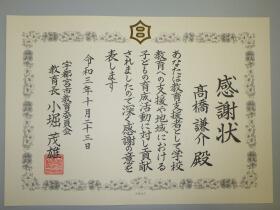 感謝状
高橋謙介殿
あなたは教育支援者として学校
教育への支援や地域における
子どもの育成活動に対し貢献
されましたので深く感謝の意を
表します
令和三年十月二十三日
宇都宮市教育委員会
教育長 小堀茂雄